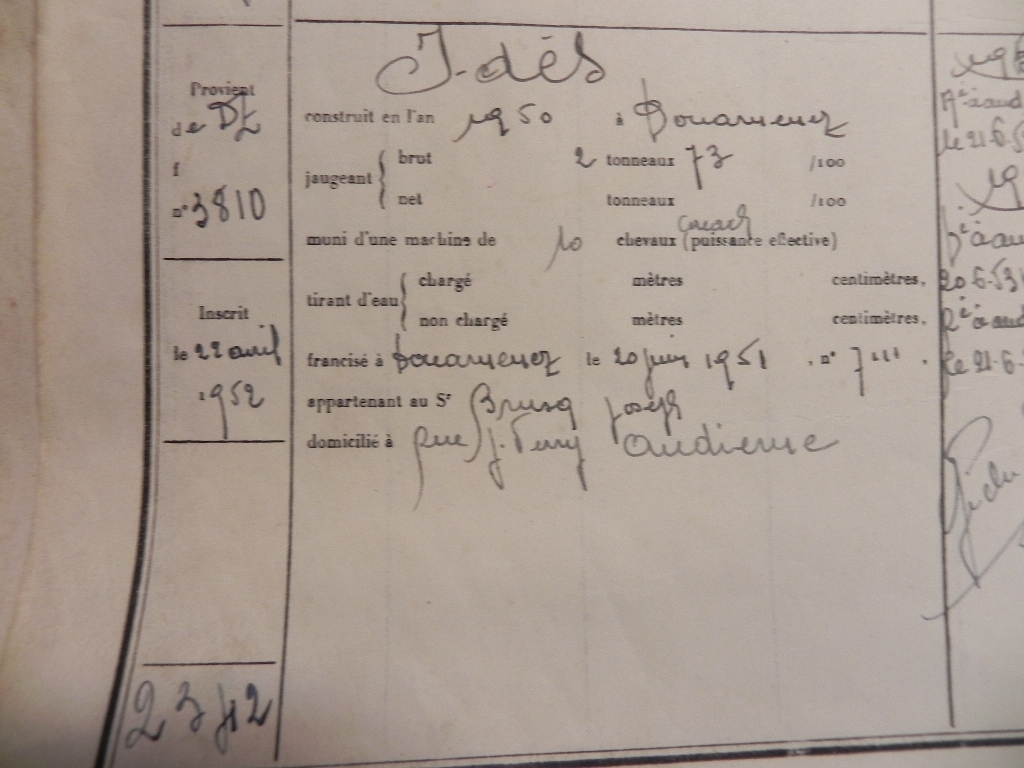 Provient
de DZ
f°
n° 3810
Inscrit
le 22 avril
1952
J-dés
construit en l'an 1950 à Douarnenez
jaugeant { brut 2 tonneaux 73 /100
net tonneaux /100
muni d'une machine de 10 chevaux (puissance effective)
tirant d'eau { chargé mètres centimètres.
non chargé mètres centimètres.
francisé à Douarnenez le 20 juin 1951 , n° 7
appartenant au Sr Brusq Joseph
domicilié à rue J. Audierne
le 21-6-5
20-6-53
le 21-6-